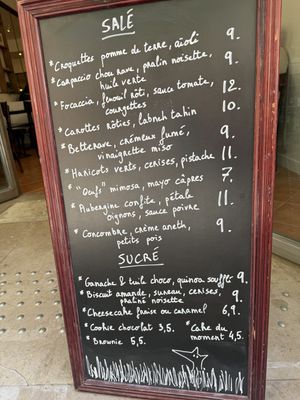 SALÉ
*Croquettes pomme de terre, aïoli 9.
*Carpaccio chou rave, pralin noisette, 9.
huile verte
*Focaccia, fenouil rôti, sauce tomate, 12.
courgettes
*Carottes rôties, labneh tahin 10.
*Betterave, crémeux fumé, 9.
vinaigrette miso
*Haricots verts, cerises, pistache 11.
*"Oeufs" mimosa, mayo câpres 7.
*Aubergine confite, pétale 11.
oignons, sauce poivre
*Concombre, crème aneth, 9.
petits pois
SUCRÉ
*Ganache & tuile choco, quinoa soufflé 9.
*Biscuit amande, sureau, cerises, 9.
praliné noisette
*Cheesecake fraise ou caramel 6,9.
*Cookie chocolat 3,5. *Cake du
*Brownie 5,5. moment 4,5.